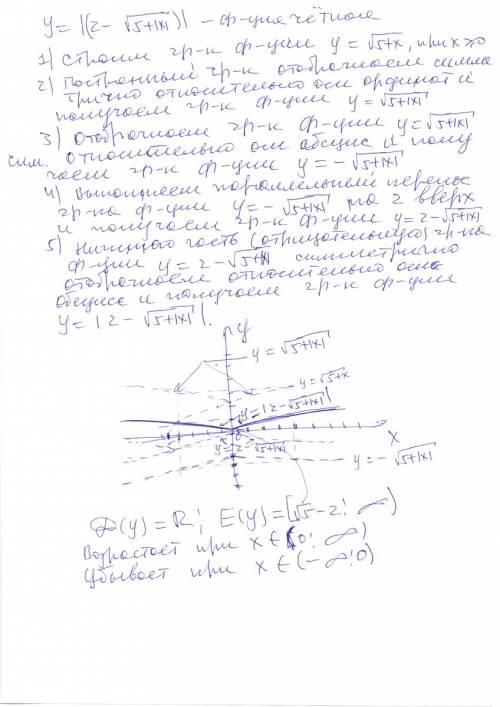 y = |(2 - √5+|x|)| - ф-ция чётная
1) Строим гр-к ф-ции y = √5+x, при x ≥ 0
2) Построенный гр-к отображаем симме
трично относительно оси ординат и
получаем гр-к ф-ции y = √5+|x|
3) Отображаем гр-к ф-ции y = √5+|x|
сим. относительно оси абсцис и полу
чаем гр-к ф-ции y = -√5+|x|
4) Выполняем параллельный перенос
гр-ка ф-ции y = -√5+|x| на 2 вверх
и получаем гр-к ф-ции y = 2-√5+|x|
5) Нижнюю часть (отрицательную) гр-ка
ф-ции y = 2-√5+|x| симметрично
отображаем относительно оси
абсцис и получаем гр-к ф-ции
y = |2-√5+|x||.
y
y = √5+|x|
y = √5+x
y = |2-√5+|x||
-5
0
x
y = 2-√5+|x|
y = -√5+|x|
D(y) = R; E(y) = [√5-2; ∞)
Возрастает при x ∈ (0; ∞)
Убывает при x ∈ (-∞; 0)